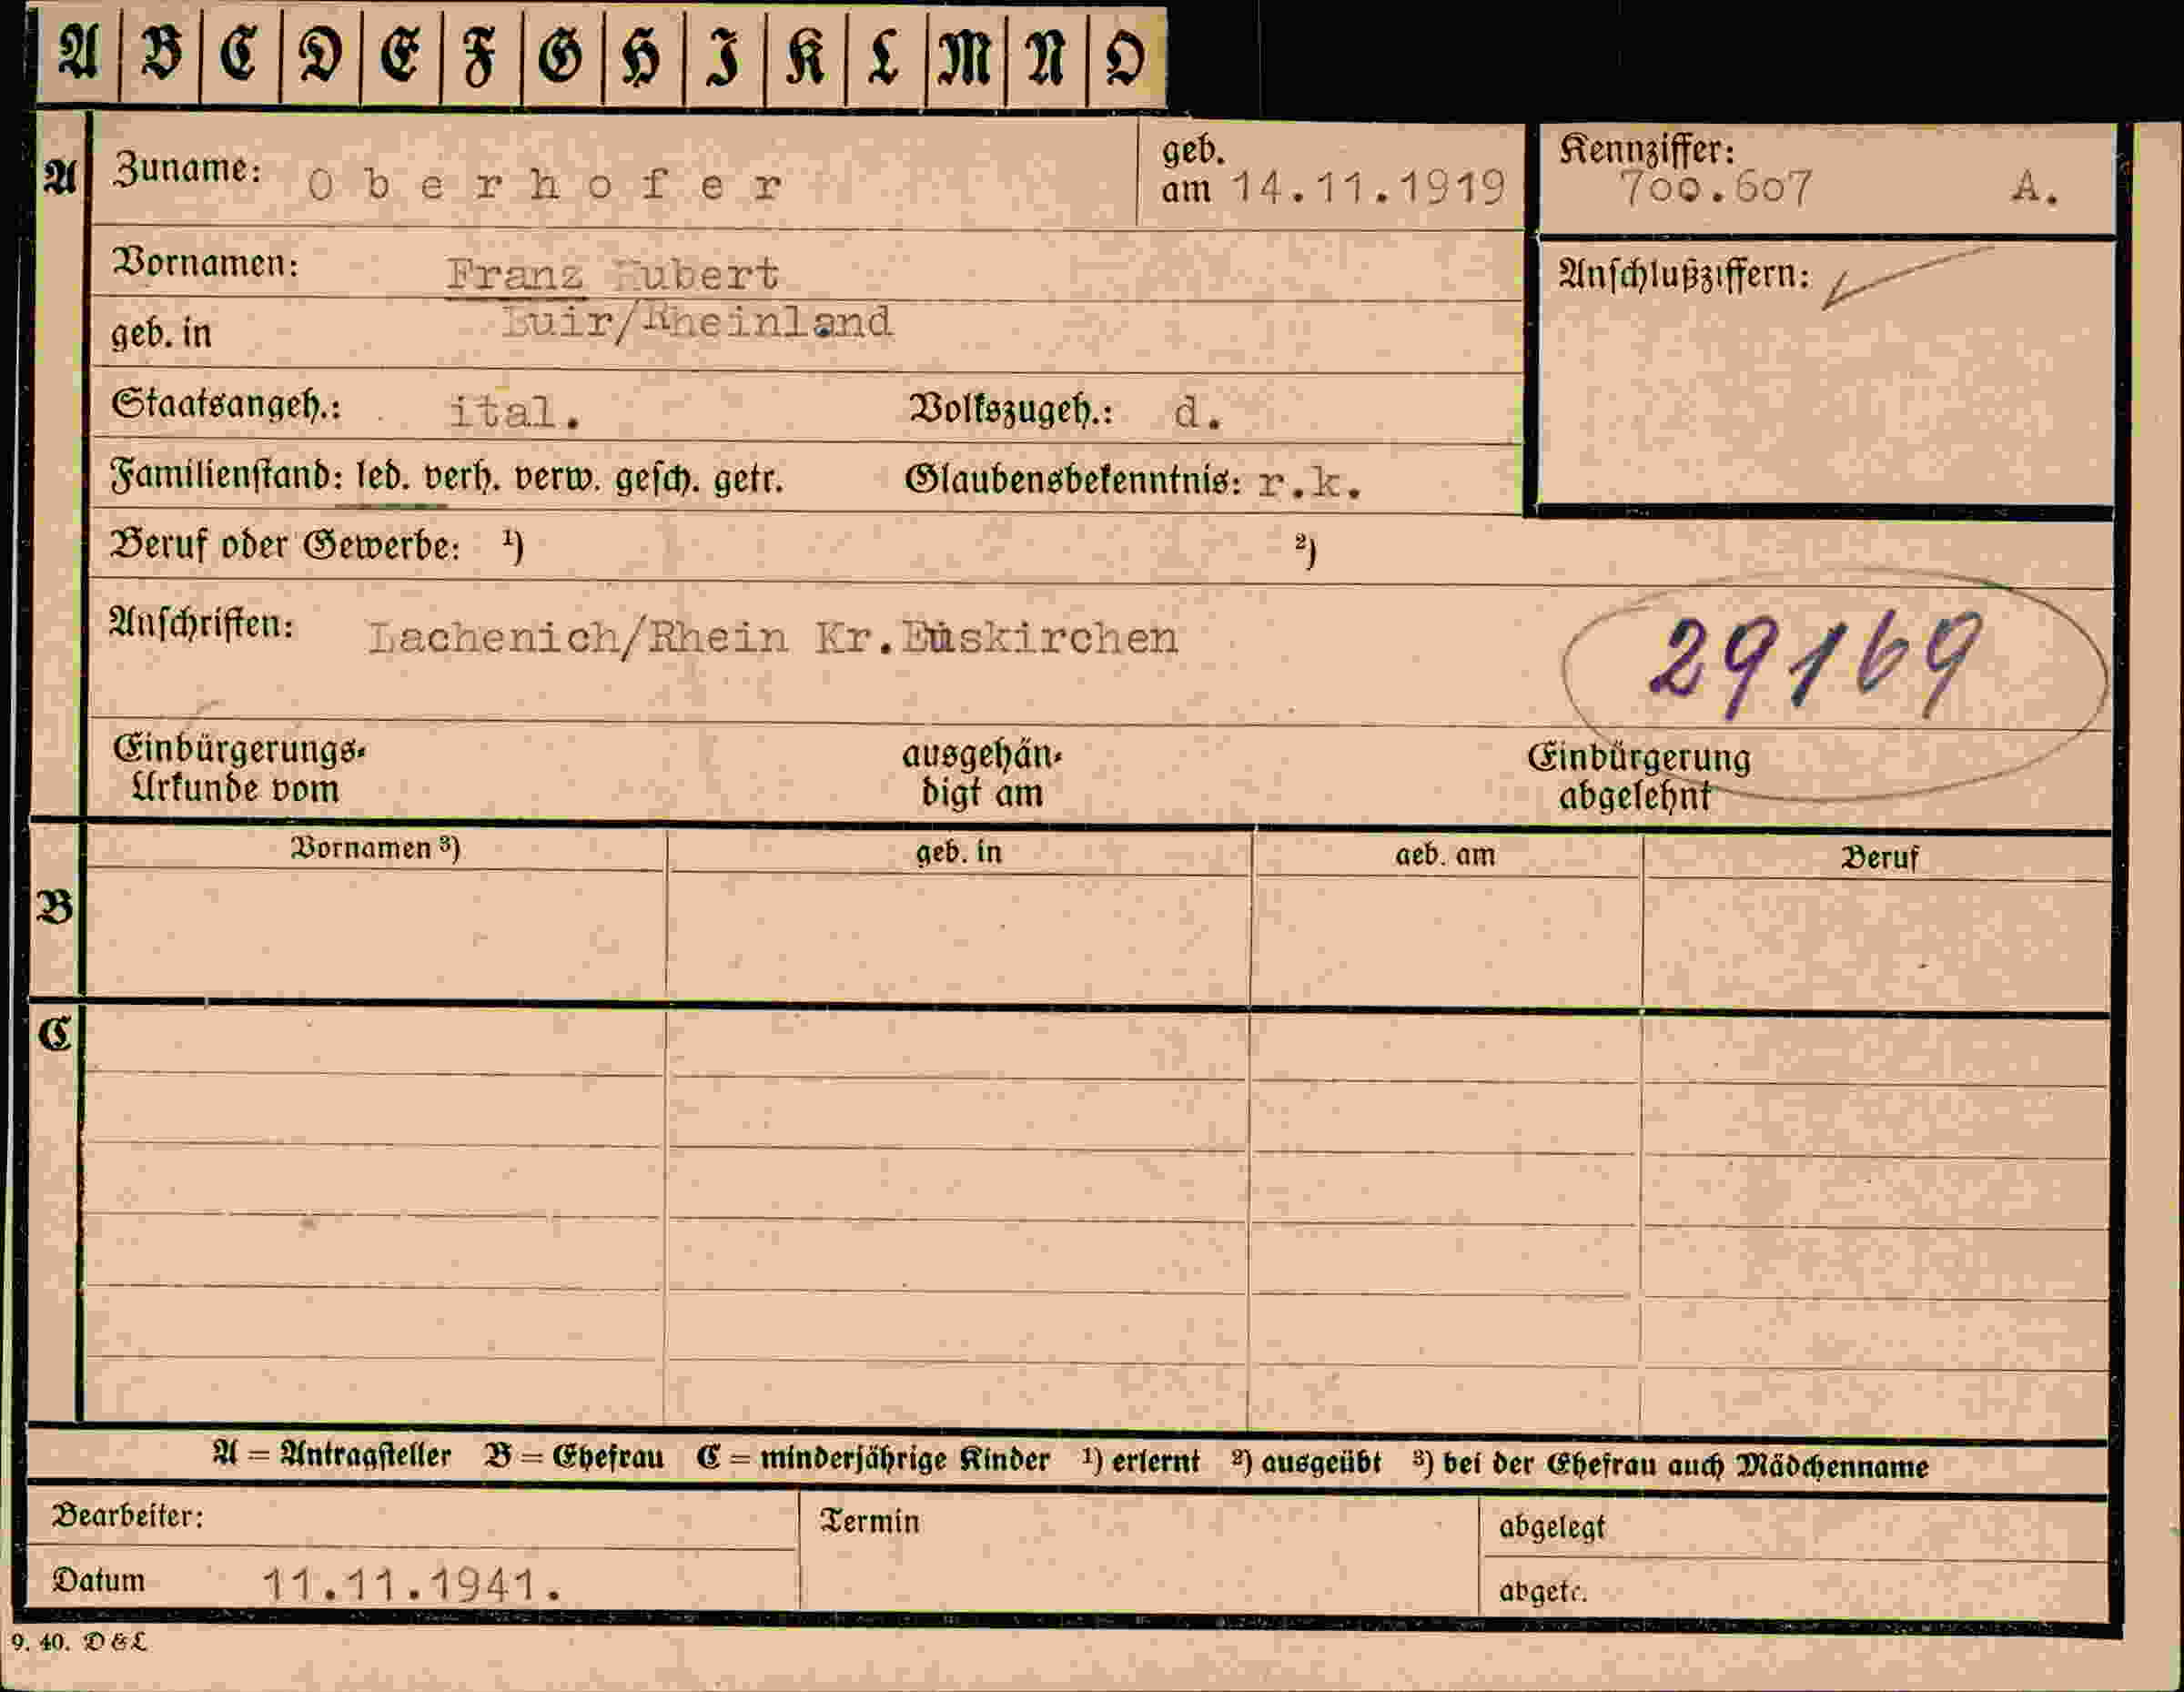 A B C D E F G H I K L M N O
A Zuname: O b e r h o f e r geb. am 14.11.1919 Kennziffer: 700.607 A.
Vornamen: Franz Hubert Anschlußziffern:
geb. in Buir/Rheinland
Staatsangeh.: ital. Volkszugeh.: d.
Familienstand: led. verh. verw. gesch. getr. Glaubensbekenntnis: r.k.
Beruf oder Gewerbe: ¹) ²)
Anschriften: Lachenich/Rhein Kr.Euskirchen 29169
Einbürgerungs- ausgehän- Einbürgerung
Urkunde vom digt am abgelehnt
Vornamen ³) geb. in geb. am Beruf
B
C
A = Antragsteller B = Ehefrau C = minderjährige Kinder ¹) erlernt ²) ausgeübt ³) bei der Ehefrau auch Mädchenname
Bearbeiter: Termin abgelegt
Datum 11.11.1941. abgetr.
9. 40. D & L